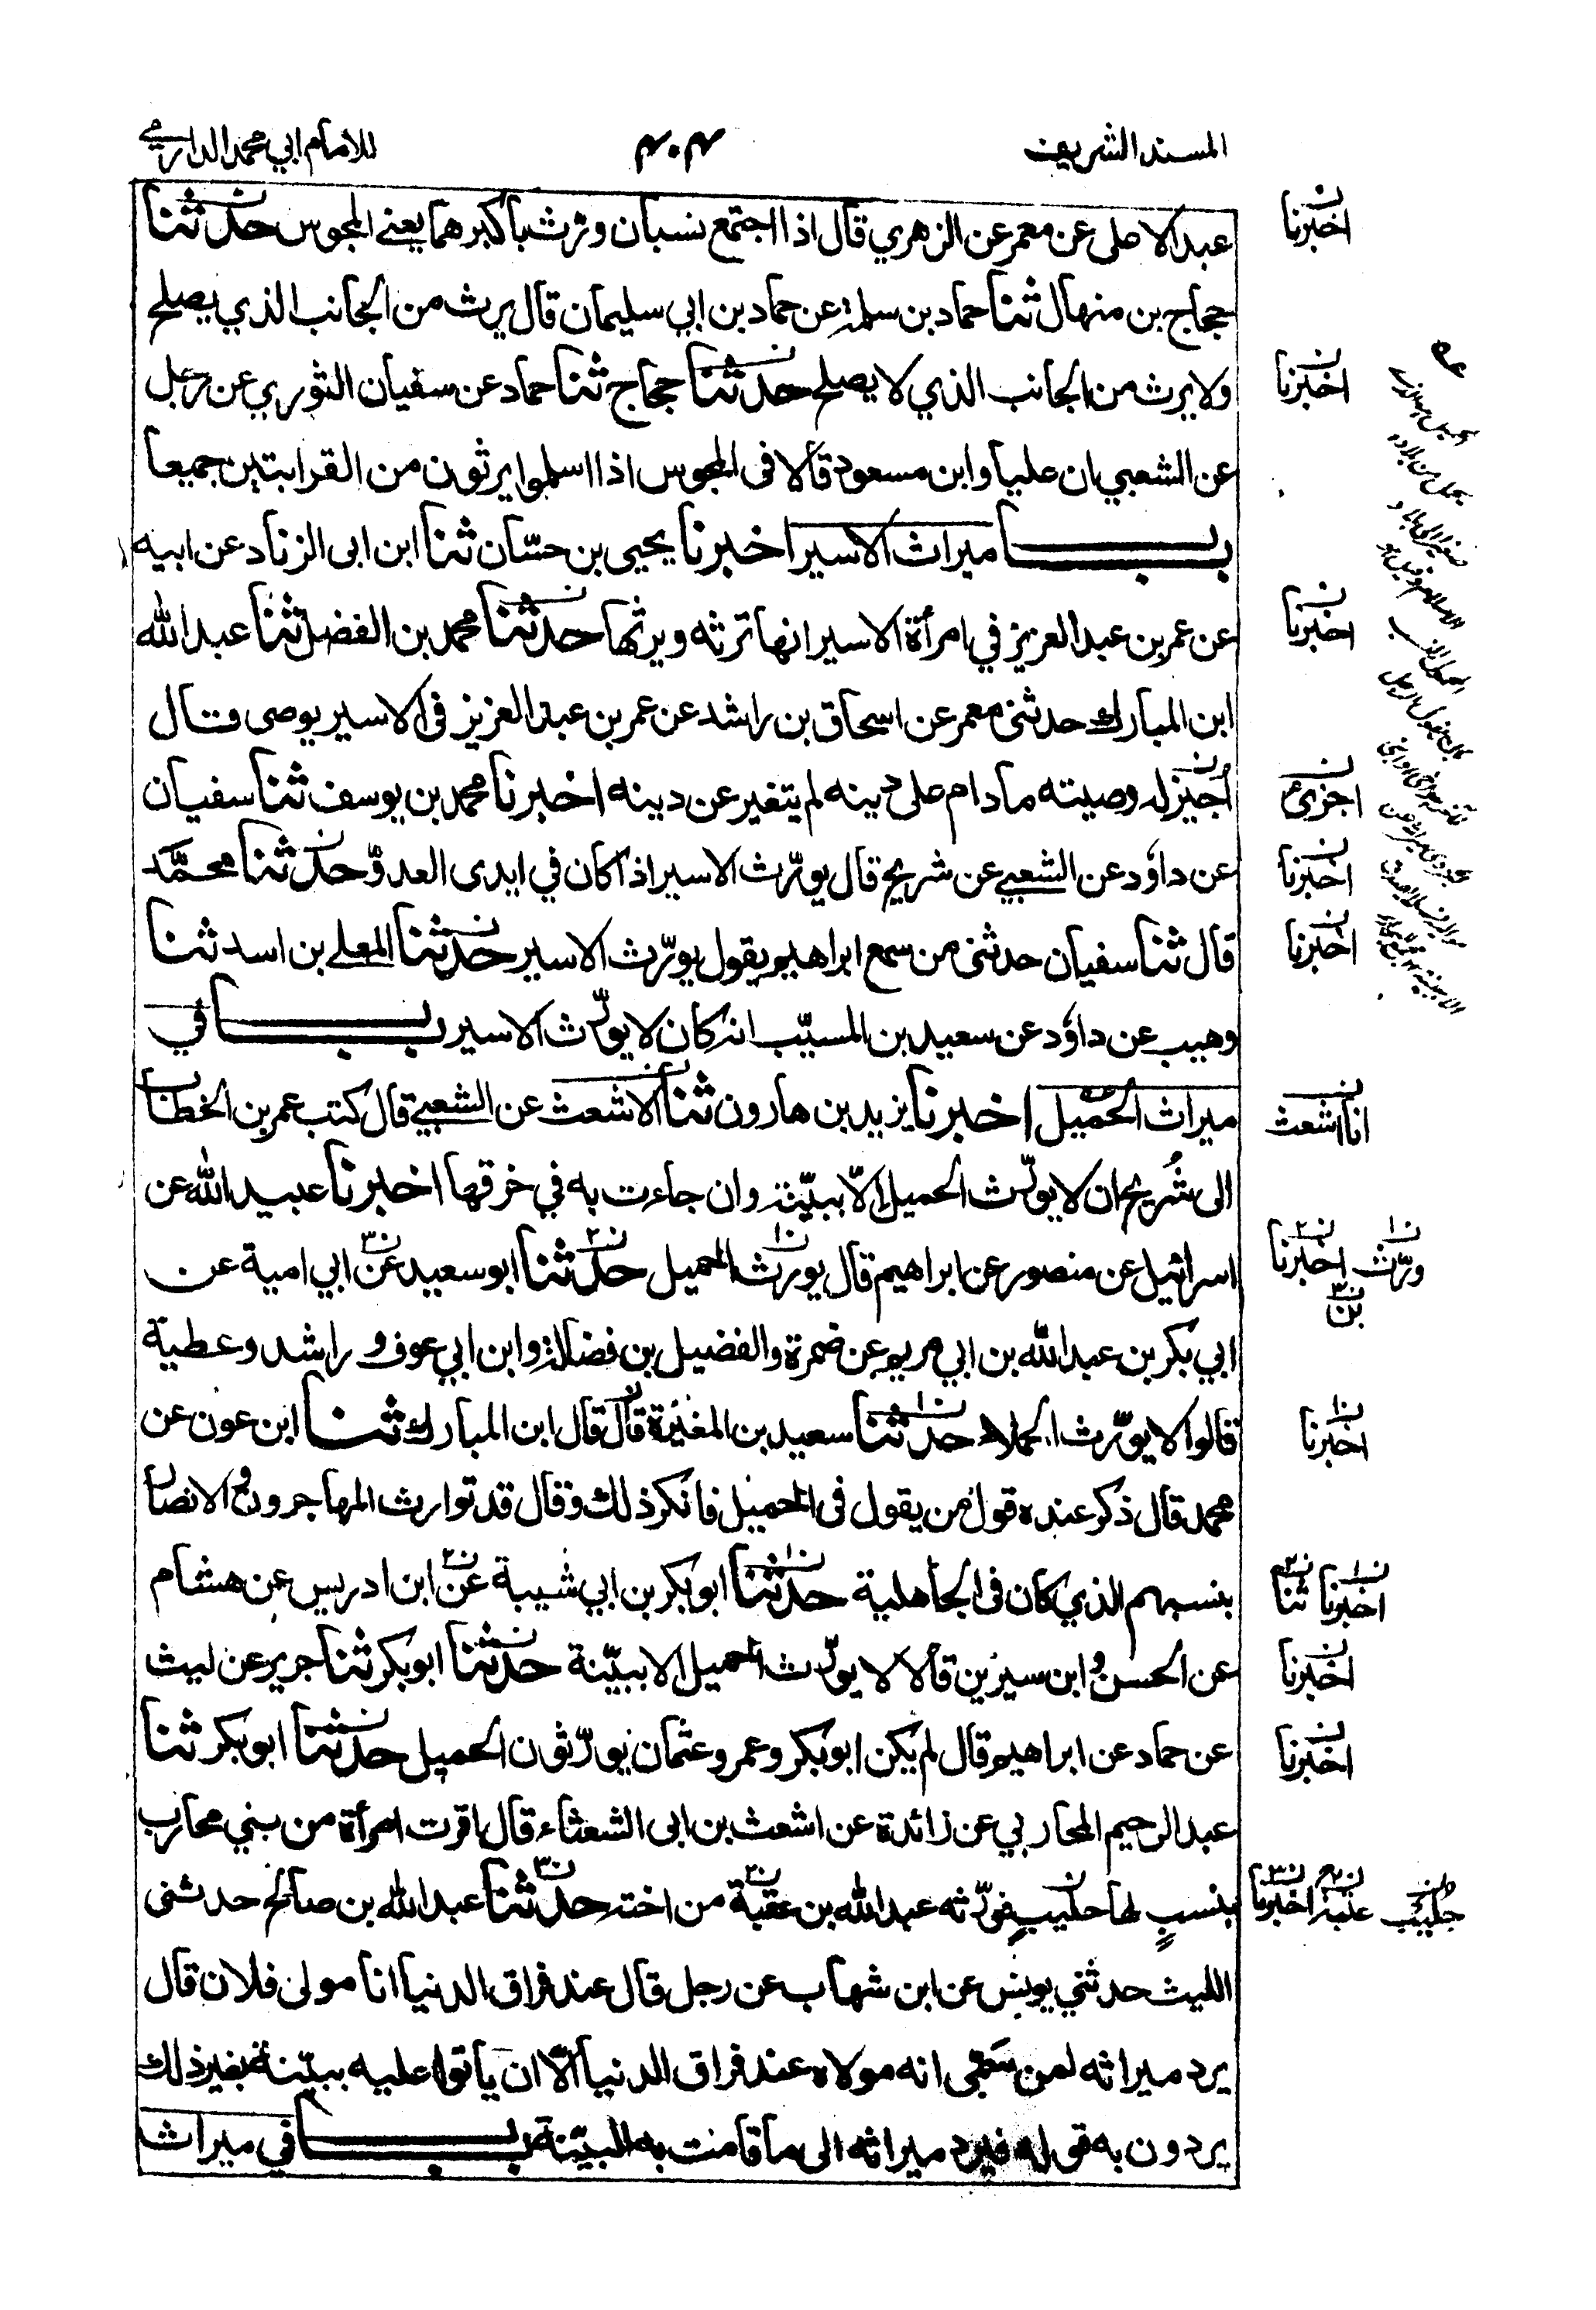 المسند الشريف
۴۰۴
للامام ابي محمد الدارمي
عبد الاعلى عن معمر عن الزهري قال اذا اجتمع نسبان ورث باكبرهما يعني المجوس حدثنا
حجاج بن منهال ثنا حماد بن سلمة عن حماد بن ابي سليمان قال يرث من الجانب الذي يصلح
ولا يرث من الجانب الذي لا يصلح حدثنا حجاج ثنا حماد عن سفيان الثوري عن رجل
عن الشعبي ان عليا وابن مسعود قالا في المجوس اذا اسلموا يرثون من القرابتين جميعا
باب ميراث الاسير اخبرنا يحيى بن حسّان ثنا ابن ابى الزناد عن ابيه
عن عمر بن عبد العزيز في امرأة الاسير انها ترثه ويرثها حدثنا محمد بن الفضل ثنا عبد الله
ابن المبارك حدثنى معمر عن اسحاق بن راشد عن عمر بن عبد العزيز فى الاسير يوصى قال
أجيز له وصيته ما دام على دينه لم يتغير عن دينه اخبرنا محمد بن يوسف ثنا سفيان
عن داؤد عن الشعبي عن شريح قال يورّث الاسير اذا كان في ايدى العدوّ حدثنا محمّد
قال ثنا سفيان حدثنى من سمع ابراهيم يقول يورّث الاسير حدثنا المعلى بن اسد ثنا
وهيب عن داؤد عن سعيد بن المسيّب انه كان لا يورّث الاسير باب في
ميراث الحميل اخبرنا يزيد بن هارون ثنا الاشعث عن الشعبي قال كتب عمر بن الخطاب
الى شُريح ان لا يورّث الحميل إلّا ببيّنة وان جاءت به في خرقها اخبرنا عبيد الله عن
اسرائيل عن منصور عن ابراهيم قال يورث الحميل حدثنا ابو سعيد عن ابي امية عن
ابي بكر بن عبد الله بن ابي مريم عن ضمرة والفضيل بن فضالة وابن ابي عوف و راشد وعطية
قالوا لا يورّث الحملاء حدثنا سعيد بن المغيرة قال قال ابن المبارك ثنا ابن عون عن
محمد قال ذكر عنده قول من يقول فى الحميل فانكر ذلك وقال قد توارث المهاجرون والانصار
بنسبهم الذي كان فى الجاهلية حدثنا ابو بكر بن ابي شيبة عن ابن ادريس عن هشام
عن الحسن وابن سيرين قالا لا يورّث الحميل الا ببيّنة حدثنا ابو بكر ثنا جرير عن ليث
عن حماد عن ابراهيم قال لم يكن ابو بكر وعمر وعثمان يورّثون الحميل حدثنا ابو بكر ثنا
عبد الرحيم المحاربي عن زائدة عن اشعث بن ابى الشعثاء قال اقرت امرأة من بني محارب
بنسبٍ لها حليبٍ فورّثه عبد الله بن عقبة من اخته حدثنا عبد الله بن صالح حدثنى
الليث حدثني يونس عن ابن شهاب عن رجل قال عند فراق الدنيا انا مولى فلان قال
يرد ميراثه لمن سمى انه مولاه عند فراق الدنيا الّا ان ياتوا عليه ببيّنة بغير ذلك
يردون به قوله فيرد ميراثه الى ما قامت به البيّنة باب في ميراث
اخبرنا
اخبرنا
اخبرنا
اجزى
اخبرنا
اخبرنا
انا اشعث
ورّث اخبرنا
بن
اخبرنا
اخبرنا ثنا
اخبرنا
اخبرنا
عتبة اخبرنا